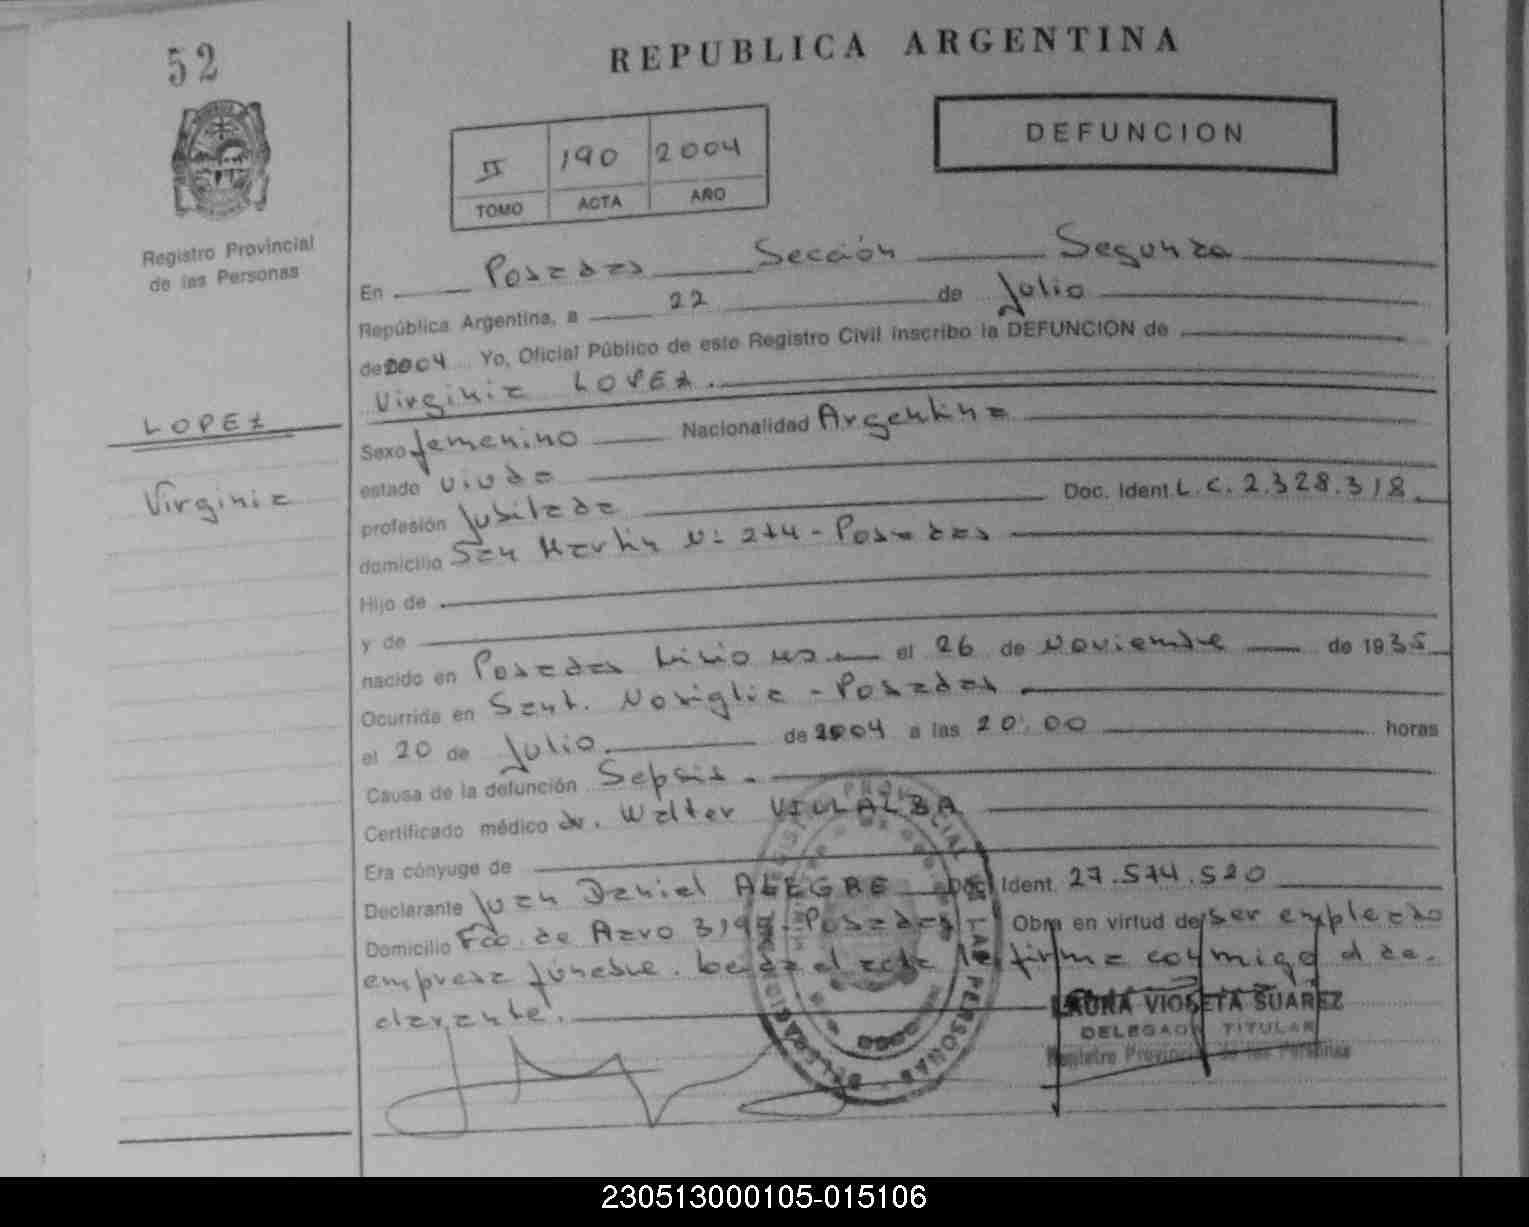 52
REPUBLICA ARGENTINA
DEFUNCION
II 190 2004
TOMO ACTA AÑO
Registro Provincial
de las Personas
En Posadas Sección Segunda
República Argentina, a 22 de Julio
de 2004 Yo, Oficial Público de este Registro Civil inscribo la DEFUNCION de
Virginia LOPEZ.
LOPEZ
Virginia
Sexo femenino Nacionalidad Argentina
estado viuda
profesión Jubilada Doc. Ident. L.C. 2.328.318
domicilio San Martín Nº 274 - Posadas
Hijo de
y de
nacido en Posadas Misiones el 26 de Noviembre de 1935
Ocurrida en Sanat. Nosiglia - Posadas
el 20 de Julio de 2004 a las 20:00 horas
Causa de la defunción Sepsis.
Certificado médico dr. Walter VILLALBA
Era cónyuge de
Declarante Juan Daniel ALEGRE Doc. Ident. 27.574.520
Domicilio Fco. de Haro Posadas Obra en virtud de ser empleado
empresa fúnebre. Leída el acta la firma conmigo el de-
clarante.
LAURA VIOLETA SUAREZ
DELEGADA TITULAR
Registro Provincial de las Personas
230513000105-015106